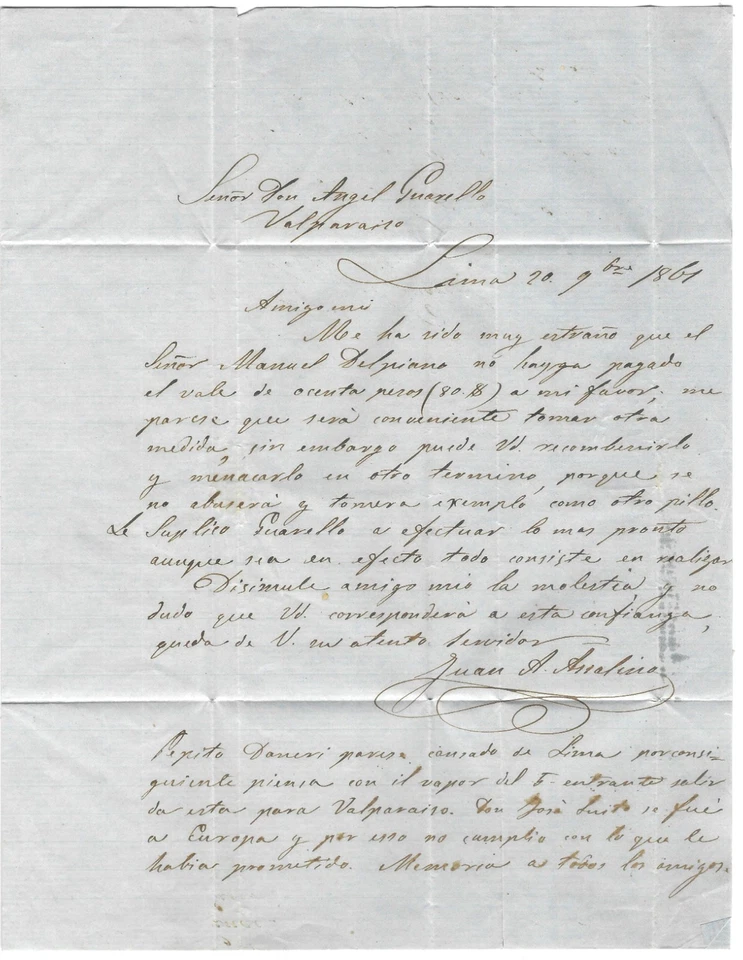 Señor Don Angel Guarello
Valparaiso
Lima 20. 9bre 1861
Amigo mio
Me ha sido muy estraño que el
Señor Manuel Delpiano no hayga pagado
el vale de ocenta pesos (80.$) a mi favor; me
parese que será conveniente tomar otra
medida, sin embargo puede Vd. recombenirlo
y menacarlo en otro termino, porque se
no abuserá y tomera exemplo como otro pillo.
Le Suplico Guarello a efectuar lo mas pronto
aunque sea en efecto todo consiste en realizar
Disimule amigo mio la molestia, y no
dudo que Vd. corresponderá a esta confianza,
queda de V. su atento Servidor
Juan A.
Pepito Daneri parese cansado de Lima porconsi=
guiente piensa con il vapor del entrante salir
da esta para Valparaiso. Don José se fué
a Europa y por esso no cumplio con lo que le
habia prometido. Memoria a todos los amigos.